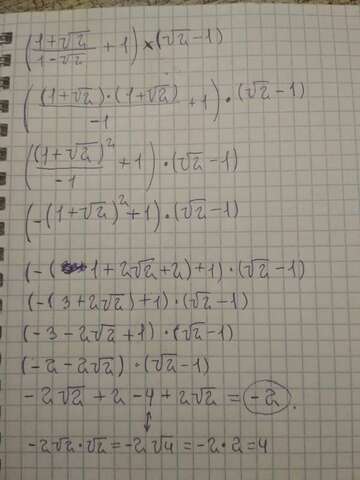 ((1+√2)/(1-√2) + 1) × (√2 - 1)
(((1+√2)·(1+√2))/-1 + 1) · (√2 - 1)
((1+√2)²/-1 + 1) · (√2 - 1)
(-(1+√2)² + 1) · (√2 - 1)
(-(1 + 2√2 + 2) + 1) · (√2 - 1)
(-(3 + 2√2) + 1) · (√2 - 1)
(-3 - 2√2 + 1) · (√2 - 1)
(-2 - 2√2) · (√2 - 1)
-2√2 + 2 - 4 + 2√2 = -2.
-2√2 · √2 = -2√4 = -2·2 = 4